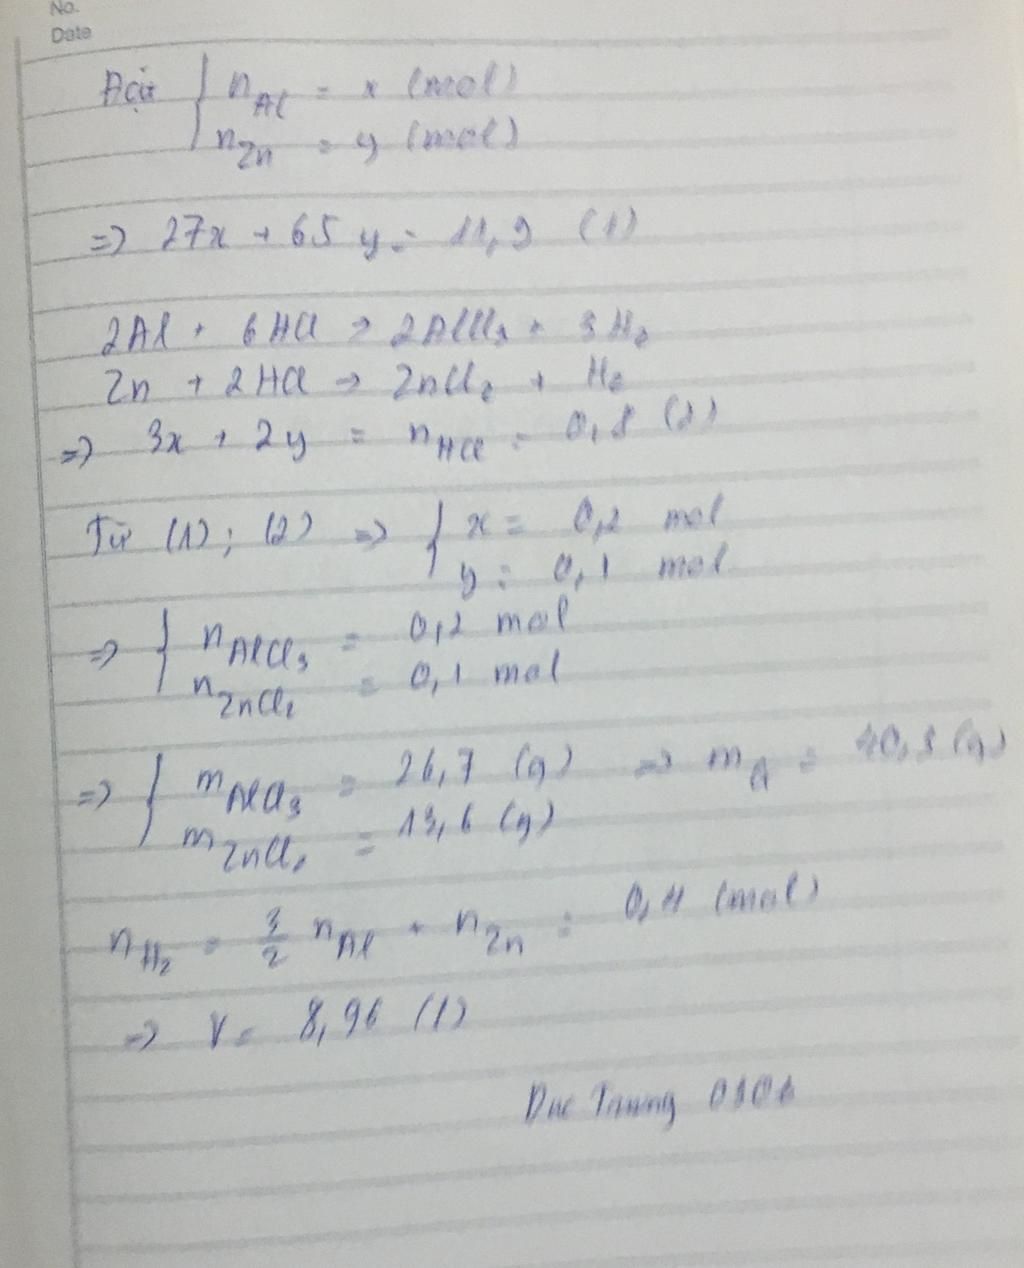 No.
Date
Đặt { nAl = x (mol)
nZn = y (mol)
=> 27x + 65y = 11,9 (1)
2Al + 6HCl -> 2AlCl3 + 3H2
Zn + 2HCl -> ZnCl2 + H2
=> 3x + 2y = nHCl = 0,8 (2)
Từ (1); (2) => { x = 0,2 mol
y = 0,1 mol
=> { nAlCl3 = 0,2 mol
nZnCl2 = 0,1 mol
=> { mAlCl3 = 26,7 (g) => mA = 40,3 (g)
mZnCl2 = 13,6 (g)
nH2 = 3/2 nAl + nZn = 0,4 (mol)
=> V = 8,96 (l)